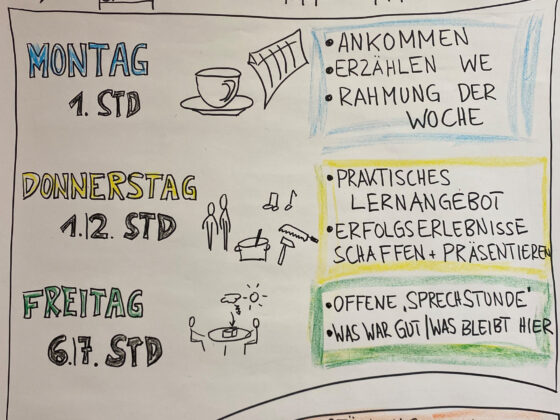 MONTAG
1. STD
• ANKOMMEN
• ERZÄHLEN WE
• RAHMUNG DER
WOCHE
DONNERSTAG
1./2. STD
• PRAKTISCHES
LERNANGEBOT
• ERFOLGSERLEBNISSE
SCHAFFEN + PRÄSENTIEREN
FREITAG
6./7. STD
• OFFENE „SPRECHSTUNDE"
• WAS WAR GUT/WAS BLEIBT HIER